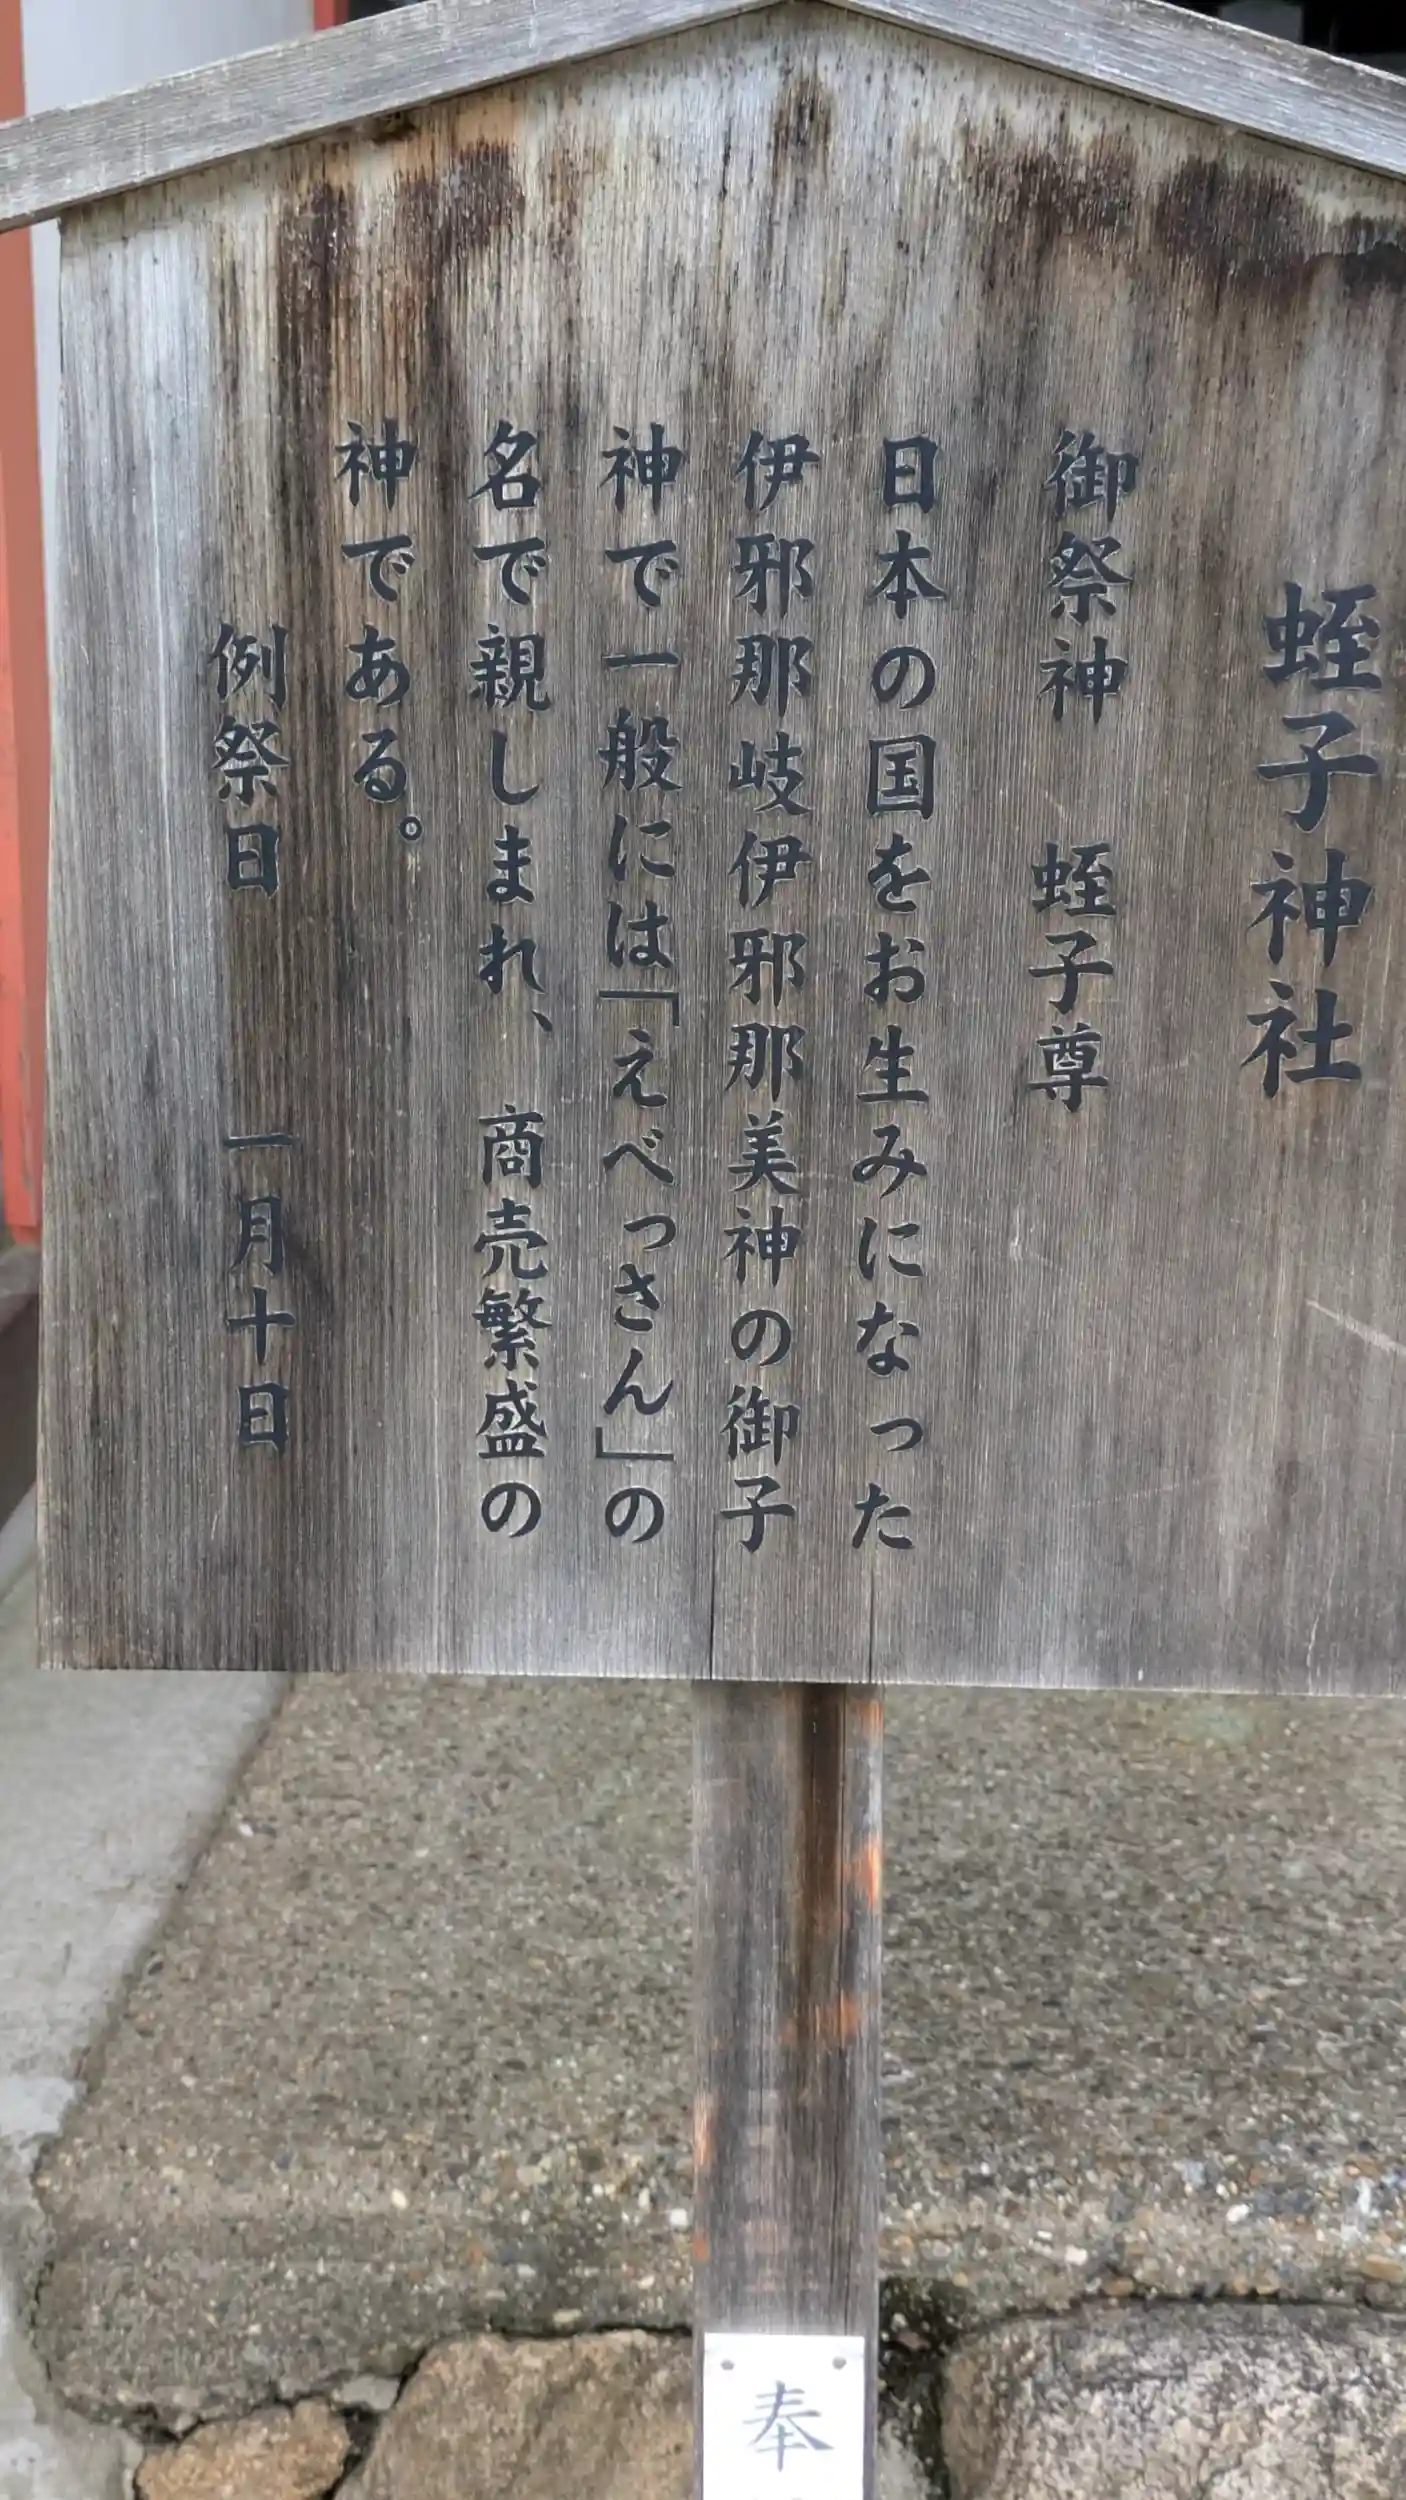 蛭子神社
御祭神　蛭子尊
日本の国をお生みになった
伊邪那岐伊邪那美神の御子
神で一般には「えべっさん」の
名で親しまれ、商売繁盛の
神である。
例祭日　一月十日
奉